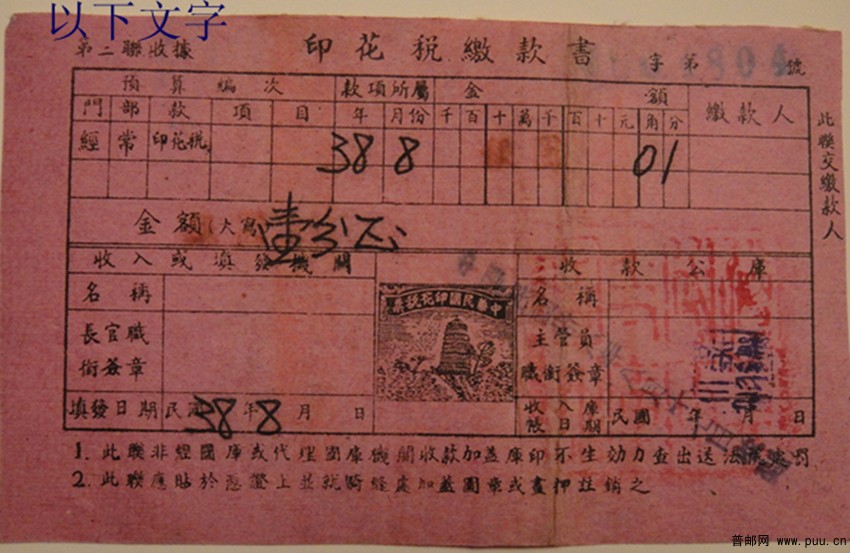 以下文字
第二聯收據 印花税繳款書 字第 804 號
預算編次 款項所屬 金額 繳款人
門 部 款 項 目 年 月份 千 百 十 萬 千 百 十 元 角 分
經 常 印花税 38 8 01
此聯交繳款人
金額(大寫)壹分正
收入或填發機關 收款公庫
名稱 中華民國印花税票 名稱
長官職 主管員
銜簽章 職銜簽章
填發日期 民國38年8月 日 收入庫
賬日期 民國 年 月 日
1. 此聯非經國庫或代理國庫機關收款加蓋庫印不生効力查出送法 罰
2. 此聯應貼於憑證上並就騎縫處加蓋圖章或畫押註銷之
普邮网 www.puu.cn